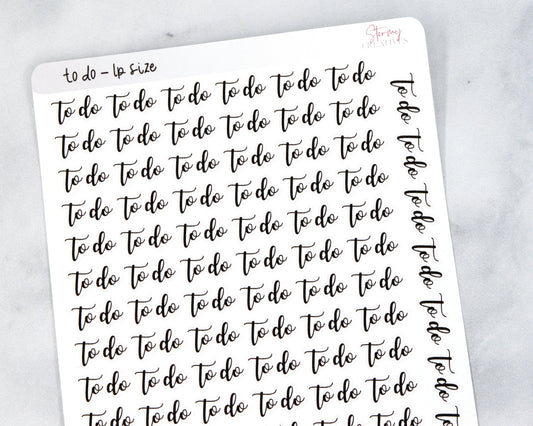 Stormy
CREATIVES
to do - lp size
to do to do to do to do to do to do
to do to do to do to do to do to do
to do to do to do to do to do to do
to do to do to do to do to do to do
to do to do to do to do to do to do
to do to do to do to do to do to do
to do to do to do to do to do to do
to do to do to do to do to do to do
to do to do to do to do to do to do
to do to do to do to do to do to do
to do to do to do to do to do to do